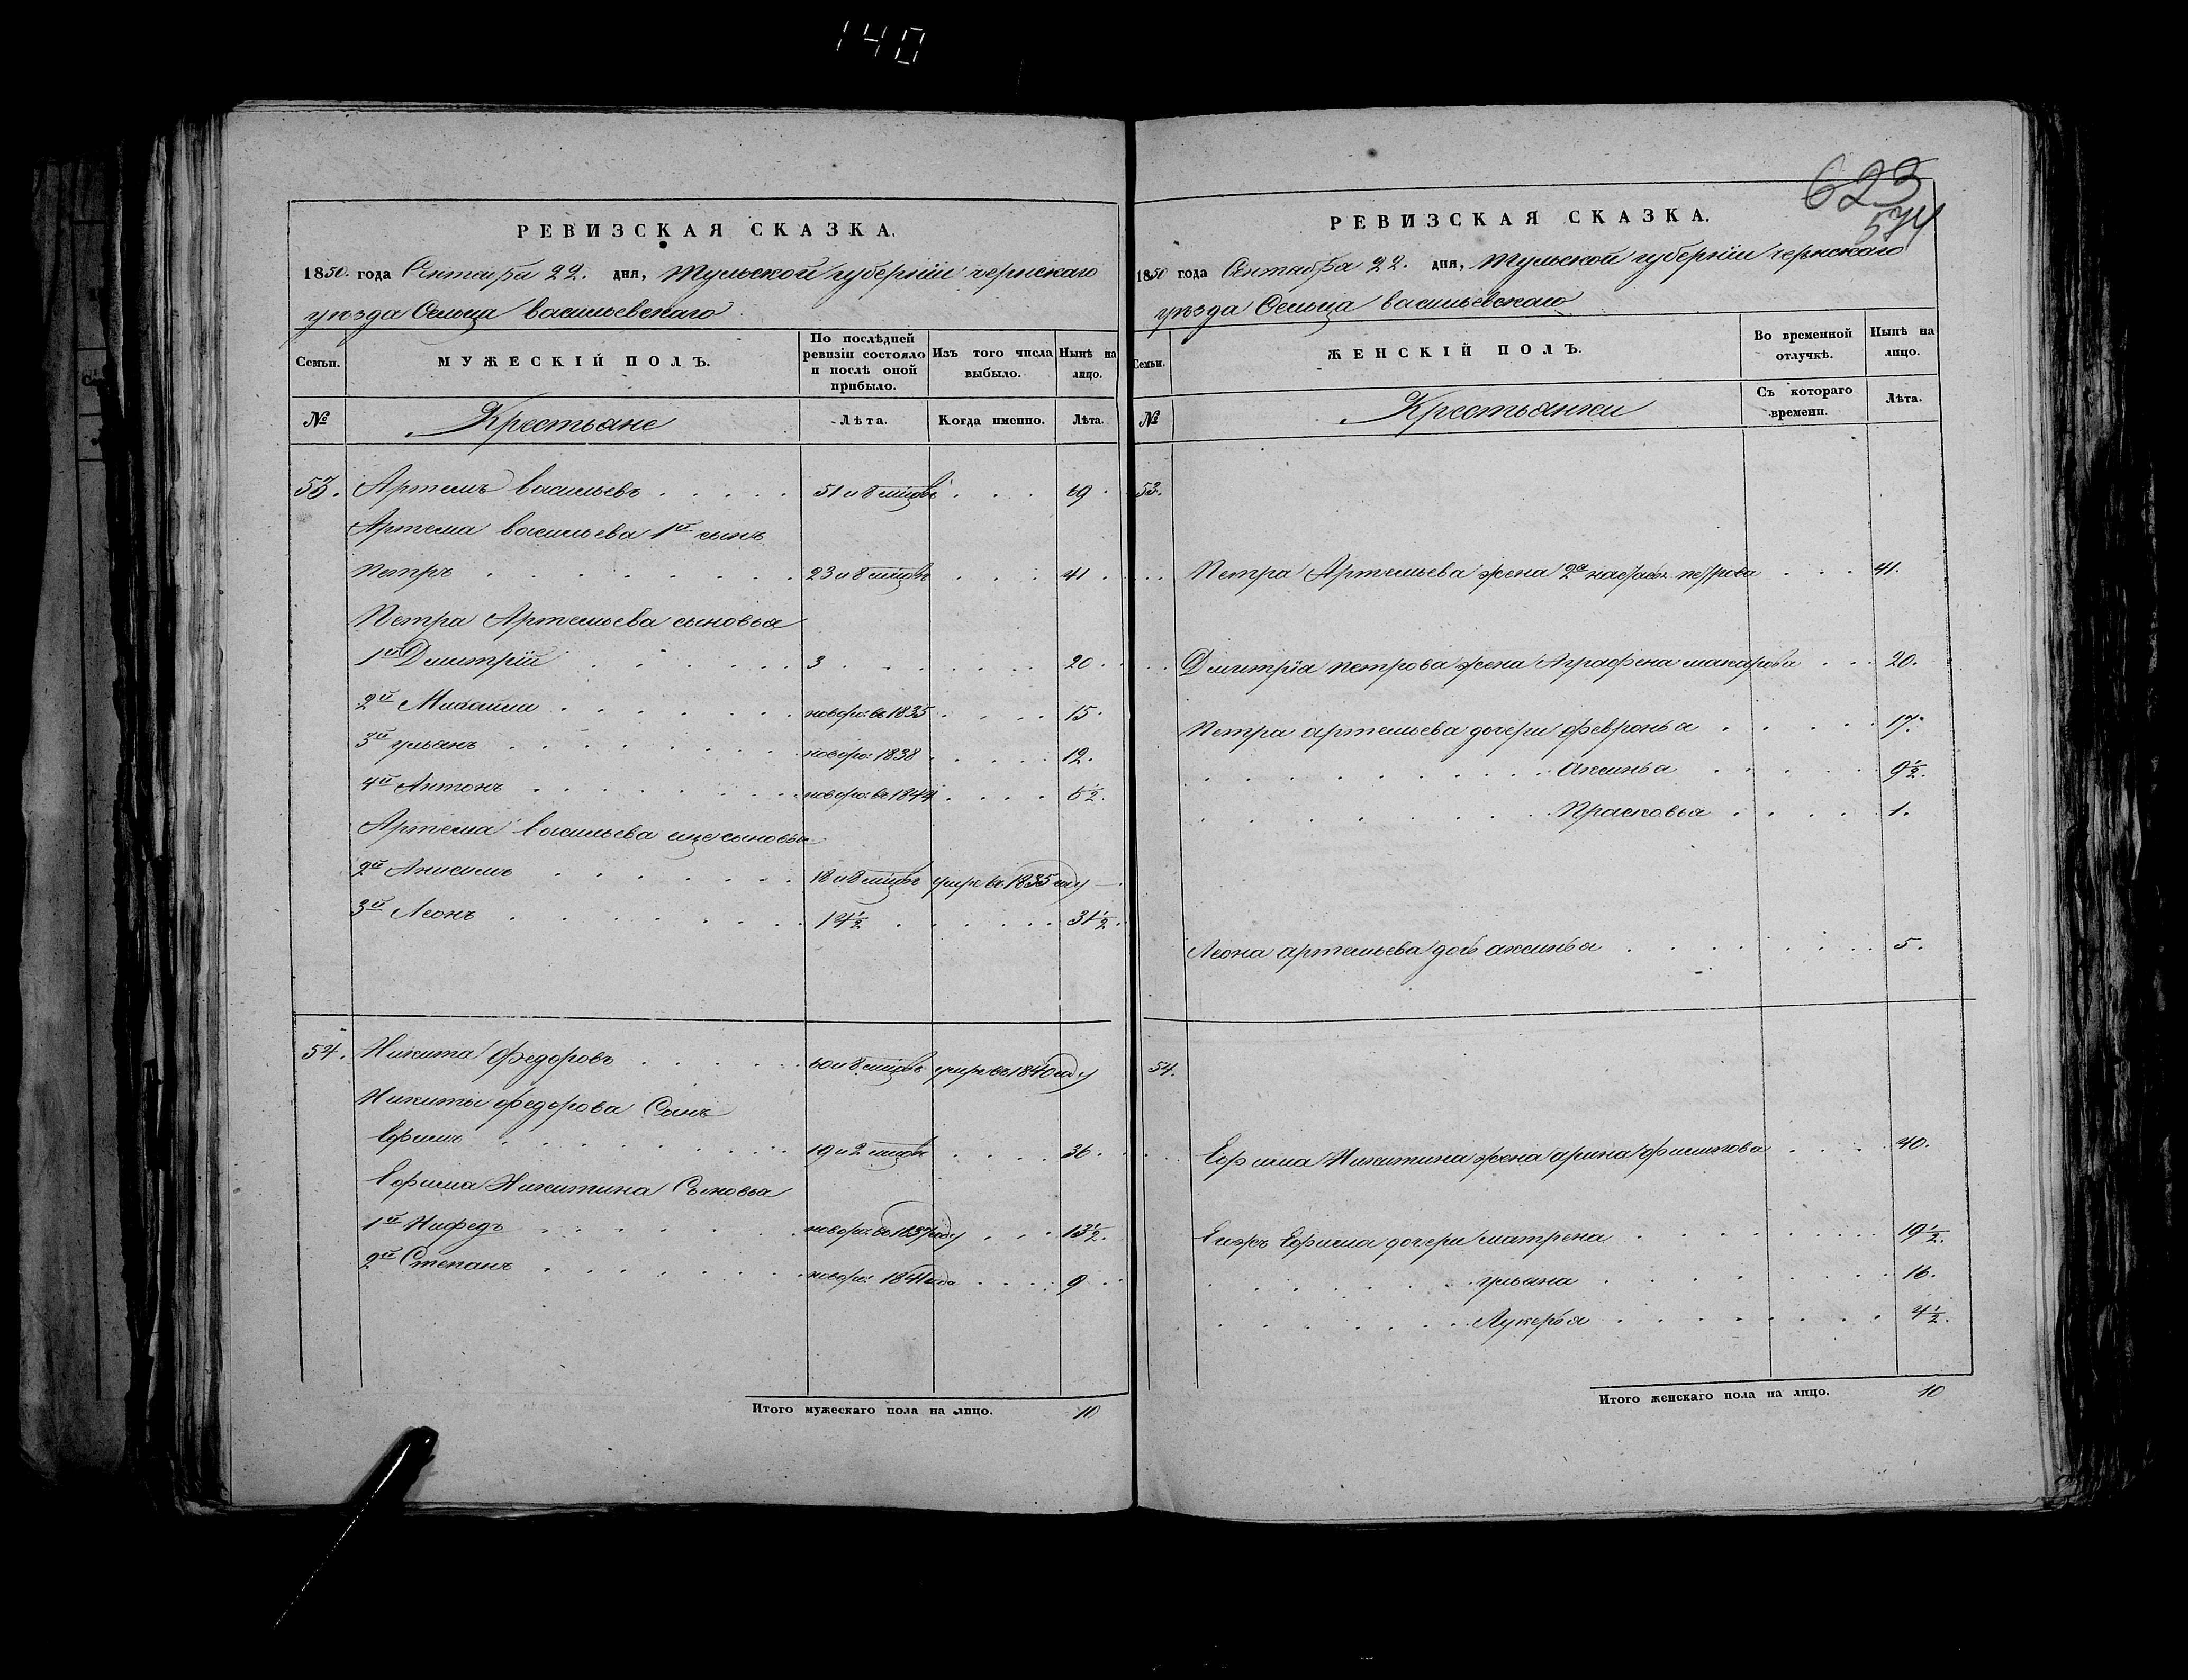 140
РЕВИЗСКАЯ СКАЗКА.
1850. года Сентября 22. дня, Тульской губерніи чернскаго
уѣзда Сельца васильевскаго
Семьи.
МУЖЕСКІЙ ПОЛЪ.
По послѣдней ревизіи состояло и послѣ оной прибыло.
Изъ того числа выбыло.
Нынѣ на лицо.
№ Крестьяне Лѣта. Когда именно. Лѣта.
53. Артемъ васильевъ . . . . . 51 и 8 мцовъ . . . 69
Артема васильева 1й сынъ
Петръ . . . . . . . . 23 и 8 мцовъ . . . 41
Петра Артемьева сыновья
1й Дмитрій . . . . . . 3 . . . . . . 20
2й Михаила . . . . . . . новоро: въ 1835 . . . . 15
3й ульянъ . . . . . . . новоро: 1838 . . . . . 12.
4й Антонъ . . . . . . . новоро: въ 1844 . . . . 6½.
Артема васильева еще сыновья
2й Анисимъ . . . . . . 18 и 8 мцовъ умре въ 1835 году —
3й Леонъ . . . . . . . 14½ . . . . . . 31½.
54. Никита федоровъ . . . . . 60 и 8 мцовъ умре въ 1840 году
Никиты федорова Сынъ
Ефимъ . . . . . . . . 19 и 2 мцовъ . . . . 36
Ефима Никитина Сыновья
1й Нифедъ . . . . . . новоро: въ 1837 году . . . 13½.
2й Степанъ . . . . . . новоро: 1841 года . . . . 9
Итого мужескаго пола на лицо. 10
623
574
РЕВИЗСКАЯ СКАЗКА.
1850 года Сентября 22. дня, Тульской губерніи чернскаго
уѣзда Сельца васильевскаго
Семьи.
ЖЕНСКІЙ ПОЛЪ.
Во временной отлучкѣ.
Нынѣ на лицо.
№ Крестьянки Съ котораго времени. Лѣта.
53.
Петра Артемьева жена 2я настасья петрова . . . 41.
Дмитрія петрова жена Аграфена макарова . . . 20.
Петра артемьева дочери февронья . . . . . 17.
. . . . . . . . . . аксинья . . . . . 9½.
. . . . . . . . . . Прасковья . . . . . 1.
Леона артемьева дочь аксинья . . . . . . . 5.
54.
Ефима Никитина жена арина филипова . . . . 40.
Ево жъ Ефима дочери матрена . . . . . . . 19½.
. . . . . . . . ульяна . . . . . . . 16.
. . . . . . . . Лукерья . . . . . . . 4½.
Итого женскаго пола на лицо. 10